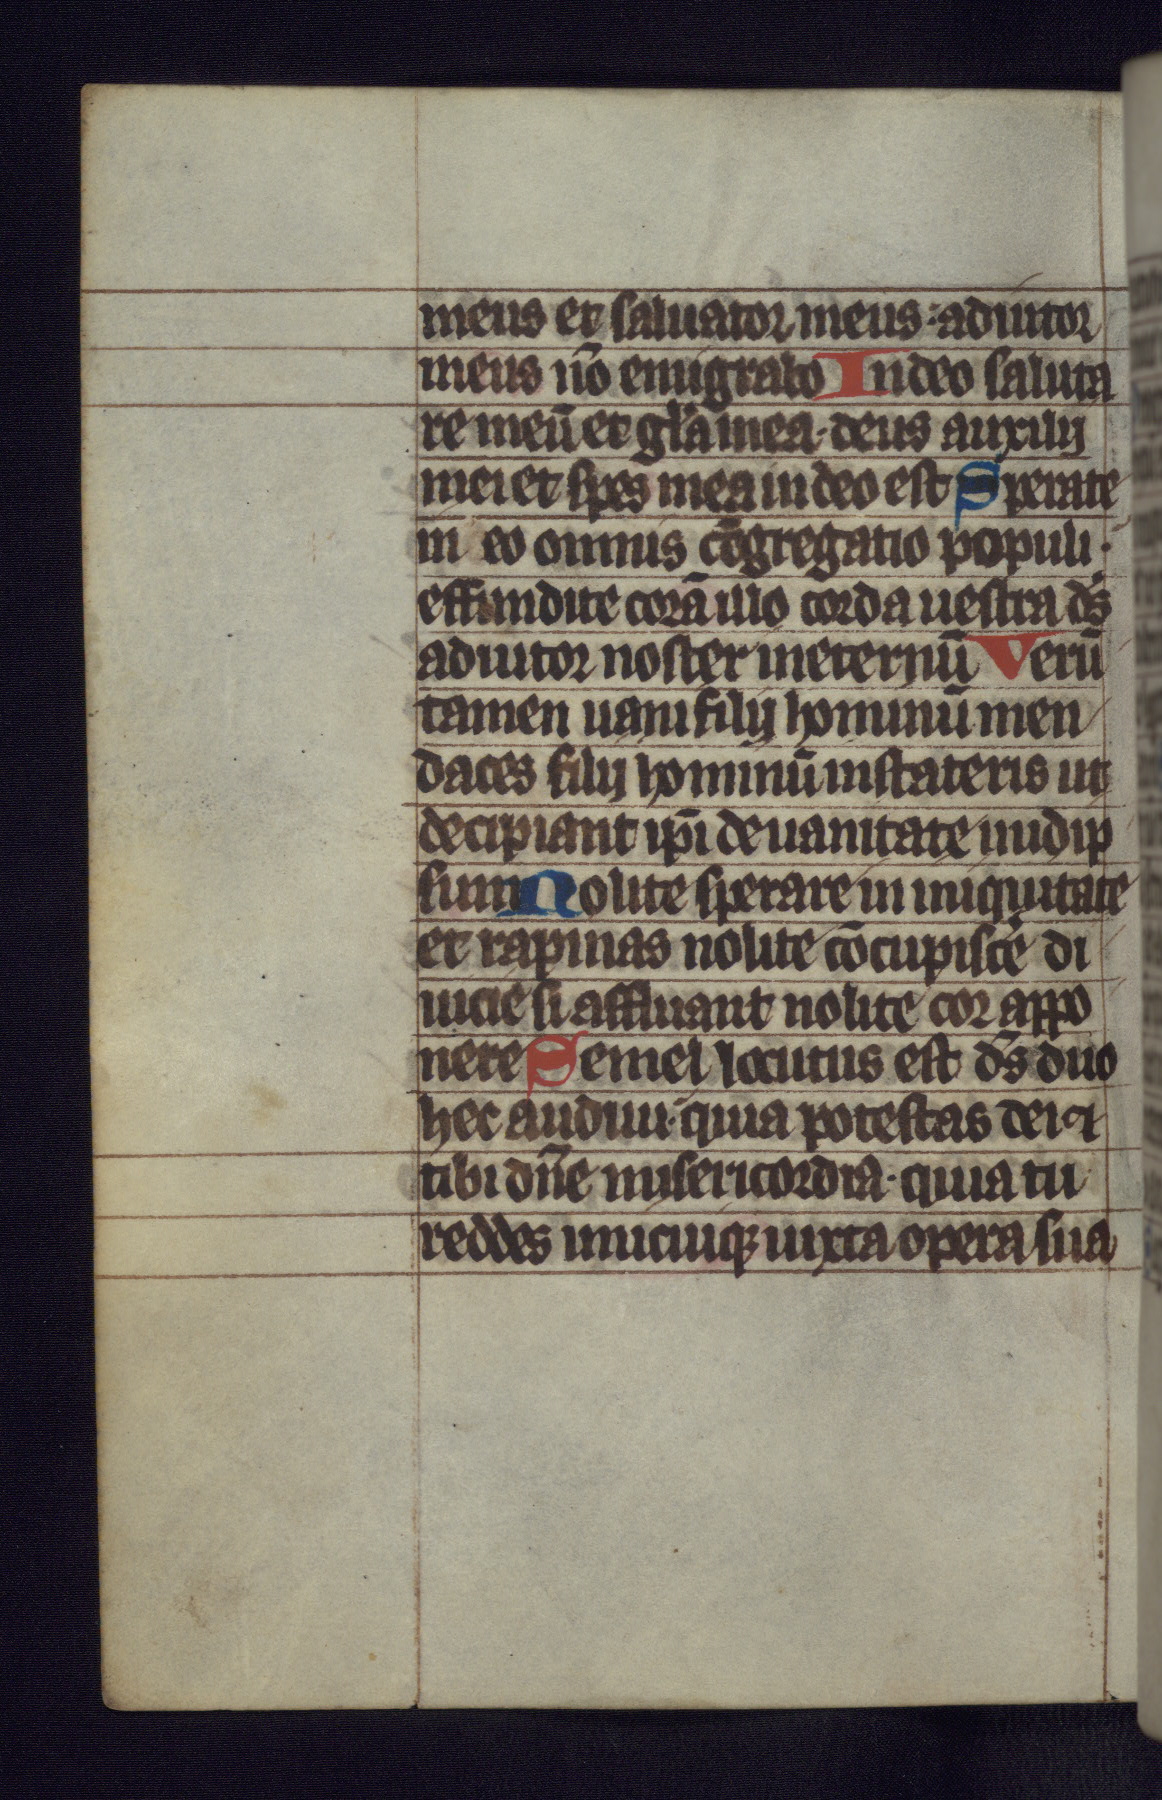 meus et saluator meus : adiutor
meus nō emigrabo In deo saluta
re meū et gl̄a mea · deus auxilij
mei et spes mea in deo est Sperate
in eo omnis cōgregatio populi ·
effundite corā illo corda uestra ds̄
adiutor noster in eternū Verū
tamen uani filij hominū men
daces filij hominū in stateris ut
decipiant ip̄i de uanitate in idip
sum Nolite sperare in iniquitate
et rapinas nolite cōcupiscē di
uicie si affluant nolite cor appo
nere Semel locutus est ds̄ duo
hec audiui · quia potestas dei ⁊
tibi dn̄e misericordia · quia tu
reddes unicuiqꝫ iuxta opera sua